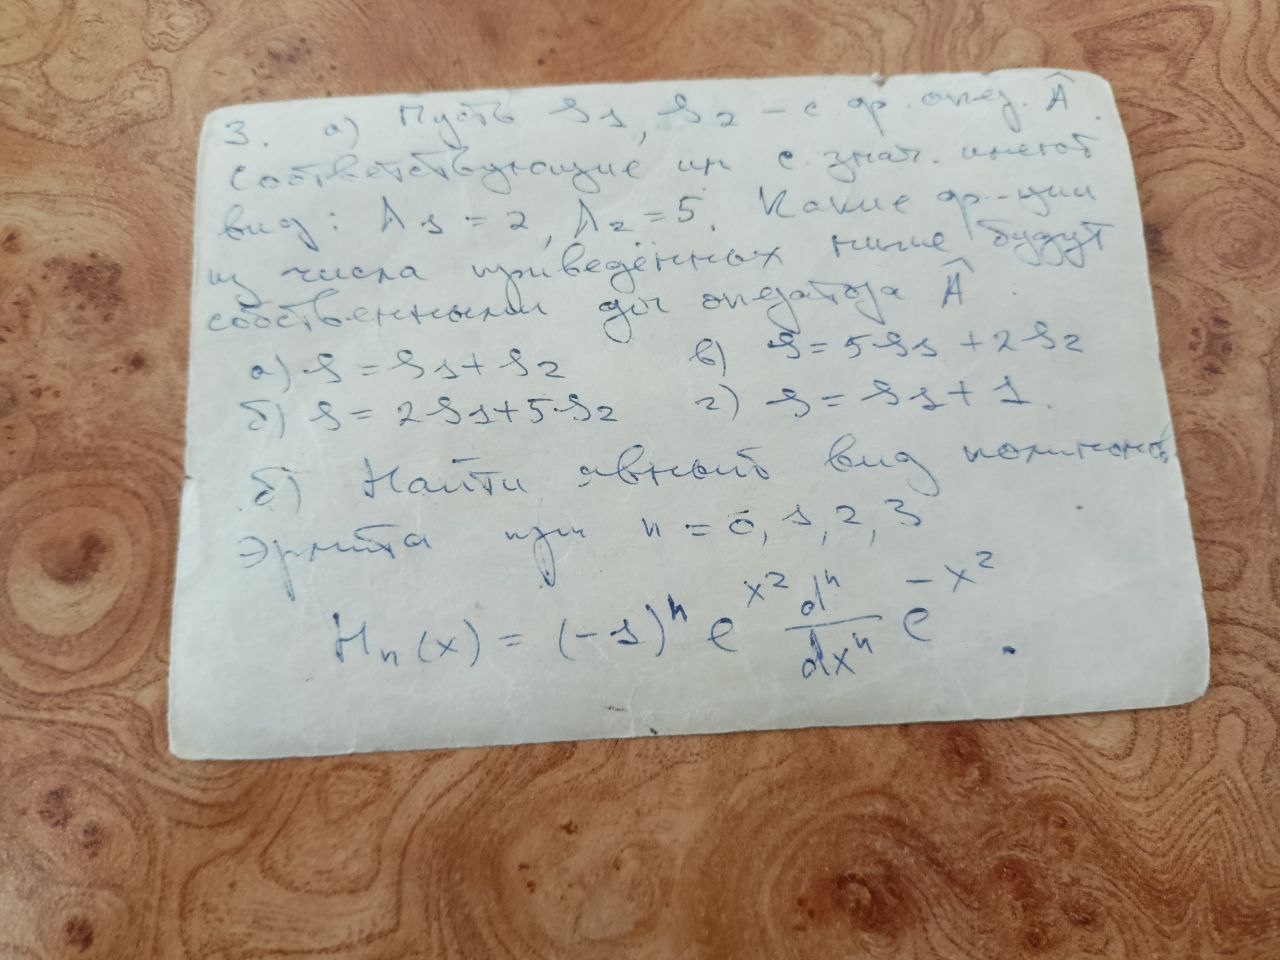 3. а) Пусть S1, S2 – с. ф. опер. Â.
Соответствующие им с. знач. имеют
вид: λ1 = 2, λ2 = 5. Какие ф-ции
из числа приведённых ниже будут
собственными для оператора Â :
а) S = S1 + S2 в) S = 5S1 + 2S2
б) S = 2S1 + 5S2 г) S = S1 + 1.
б) Найти явный вид полиномов
Эрмита при n = 0, 1, 2, 3
Hn(x) = (-1)ⁿ e^x² dⁿ/dxⁿ e^-x² .